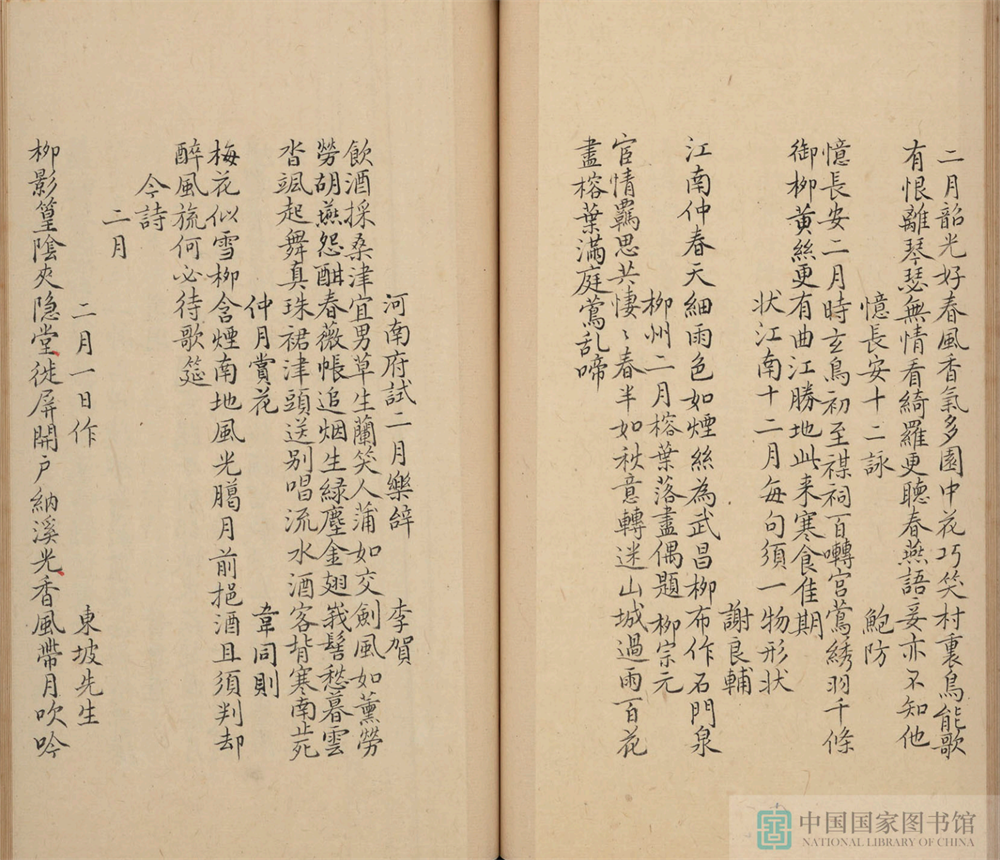 二月韶光好春風香氣多園中花巧笑村裏鳥能歌
有恨離琴瑟無情看綺羅更聽春燕語妾亦不知他
憶長安十二詠 鮑防
憶長安二月時玄鳥初至禖祠百囀宮鶯綉羽千條
御柳黃絲更有曲江勝地此来寒食佳期
狀江南十二月每句須一物形状
謝良輔
江南仲春天細雨色如煙絲為武昌柳布作石門泉
柳州二月榕葉落盡偶題 柳宗元
宦情羈思共悽〻春半如秋意轉迷山城過雨百花
盡榕葉滿庭鶯乱啼
河南府試二月樂辝 李賀
飲酒採桑津宜男草生蘭笑人蒲如交劍風如薰勞
勞胡燕怨酣春薇帳追烟生緑塵金翅峩髻愁暮雲
沓颯起舞真珠裙津頭送别唱流水酒客背寒南山死
仲月賞花 韋同則
梅花似雪柳含煙南地風光臈月前挹酒且須判却
醉風旒何必待歌筵
今詩
二月
二月一日作 東坡先生
柳影篁陰夾隐堂徙屏開戶納溪光香風帶月吹吟
中国国家图书馆
NATIONAL LIBRARY OF CHINA